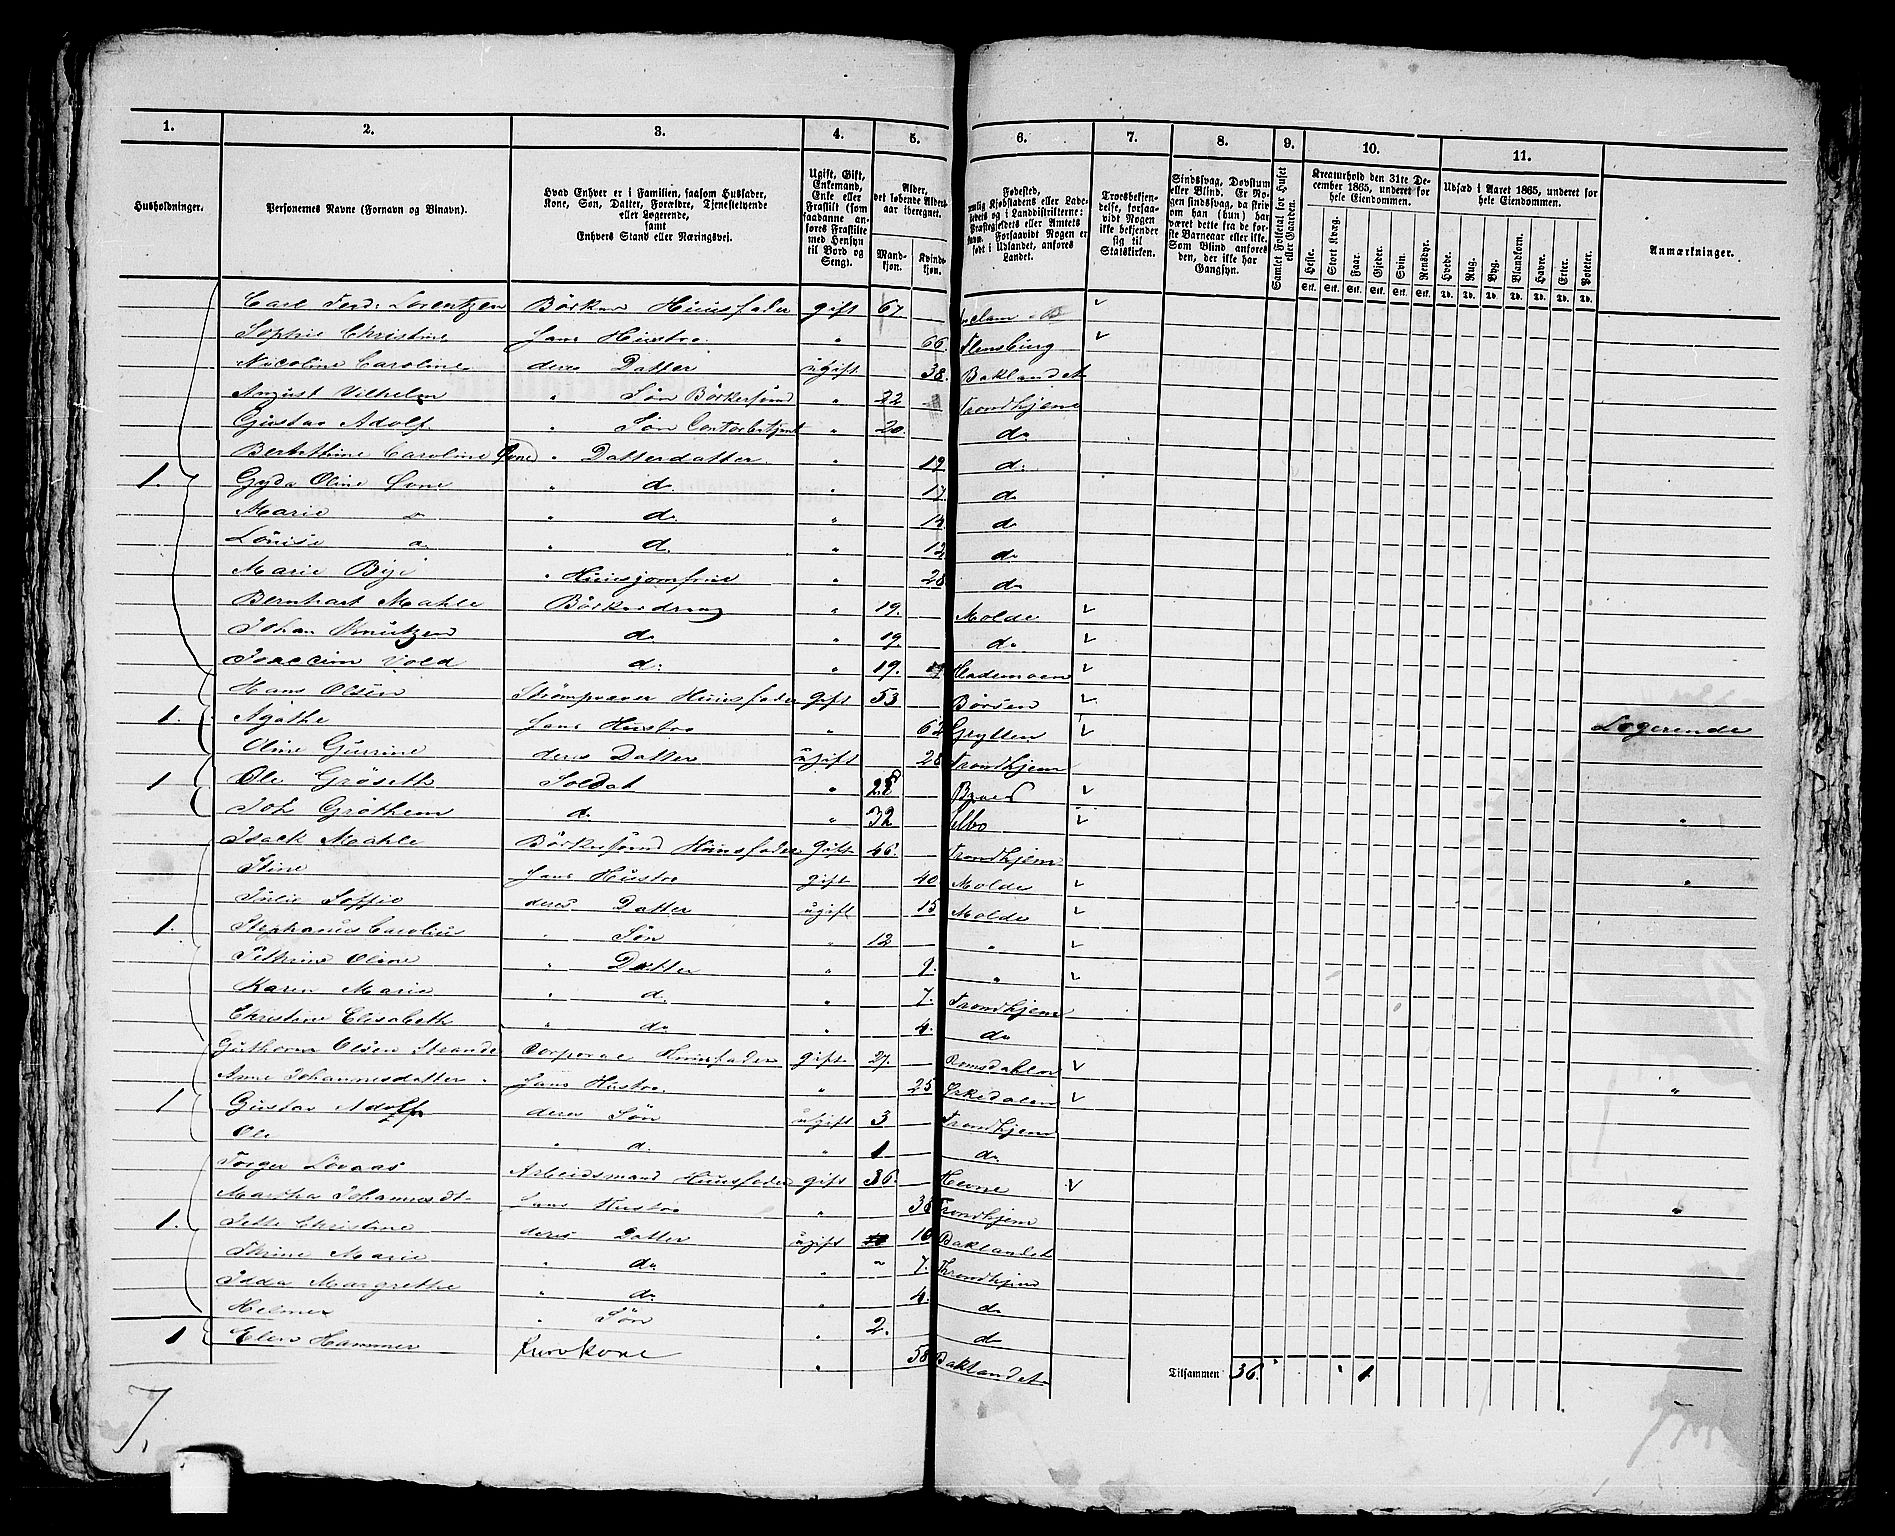 1. 2. 3. 4. 5. 6. 7. 8. 9. 10. 11.
Husholdninger.
Personernes Navne (Fornavn og Binavn).
Hvad Enhver er i Familien, saasom Husfader, Kone, Søn, Datter, Forældre, Tjenestetyende eller Logerende, samt Enhvers Stand eller Næringsvei.
Ugift, Gift, Enkemand, Enke eller Fraskilt (som saadanne anføres Fraskilte med Hensyn til Bord og Seng).
Alder, det løbende Aldersaar iberegnet.
Mandkjøn. Kvindekjøn.
Fødested,
Troesbekjendelse, forsaavidt Nogen ikke bekjender sig til Statskirken.
Sindssvag, Døvstum eller Blind. Er Nogen sindssvag, da skrives om han (hun) har været dette fra de første Barneaar eller ikke. Som Blind anføres den, der ikke har Gangsyn.
Samlet Folketal for Huset eller Gaarden.
Kreaturhold den 31te December 1865, underet for hele Eiendommen.
Heste. Stort Kvæg. Faar. Gjeder. Svin. Rensdyr.
Udsæd i Aaret 1865, underet for hele Eiendommen.
Hvede. Rug. Byg. Blandkorn. Havre. Erter. Poteter.
Anmærkninger.
Carl Ferd: Lorentzen Bödker Huusfader gift 67
Sophie Christine Hans Hustro " 66 Flensburg
Nicoline Caroline deres Datter ugift 38 Baklandet
August Vilhelm " Søn Bödkersvend " 22 Trondhjem
Gustav Adolf " Søn Contorbetjent " 20 do
Caroline " Datterdatter " 19 do
1. Gyda Oline " do " 17 do
Marie do " do " 14 do
Lovise do " do " 12 do
Marie Bye " Huusjomfrue " 28 do
Bernhart Mahle Bödkerdreng " 19 Molde
Johan Knutzen do " 19 do
Joachim Vold do " 19
Hans Olsen Strömpvæver Huusfader gift 53 Börsen
1. Agathe Hans Hustro " 62 Grytten Logerende
Oline Gurine deres Datter ugift 28 Trondhjem
1 Ole Gröseth Soldat " 28 Bynes
Joh Gröthem do " 32 Selbo "
Isack Mahle Bödkersvend Huusfader Gift 46 Trondhjem
Stine Hans Hustro gift 40 Molde "
Julie Soffie deres Datter ugift 15 Molde
1. Stephanus Carolius " Søn " 12 "
Pethrine Oline " Datter " 9 "
Karen Marie " do " 7 Trondhjem
Christine Elisabeth " do " 4 do
Guthorm Olsen Strande Corporal Huusfader gift 27 Romsdahlen
Ane Johannesdatter Hans Hustro " 25 Orkedalen "
1 Gustav Adolf deres Søn ugift 3 Trondhjem
Ole " do " 1 do
Torger Lovaas Arbeidsmand Huusfader gift 36 Hevne
Martha Johannesdt Hans Hustro " 38 Trondhjem "
1. Jette Christine deres Datter ugift 10 Baklandet
Thrine Marie " do " 7 Trondhjem
Idda Margrethe " do " 4 do
Helmer " Søn " 2 do
1 Elen Hammer " 58 Baklandet
Tilsammen 36 " " 1
7.